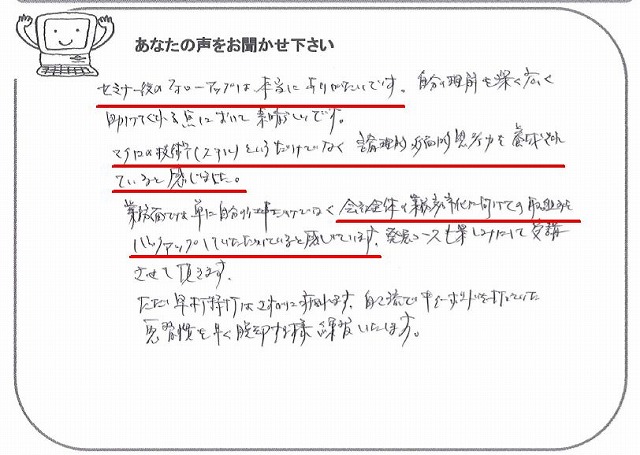 あなたの声をお聞かせ下さい
セミナー後のフォローアップは本当にありがたいです。自分の理解を深く広く
助けてくれる点において素晴らしいです。
マクロの技術(スキル)というだけでなく論理的 思考力を養成され
ていると感じました。
業務面では単に自分の仕事だけでなく会社全体の業務効率化に向けての取り組みを
バックアップしていただけていると感じています。発展コースも楽しみにして受講
させて頂きます。
ただ早打ち はさすがに疲れます。自己流で キーボードを打っていた
悪習慣を早く脱却する様 練習いたします。